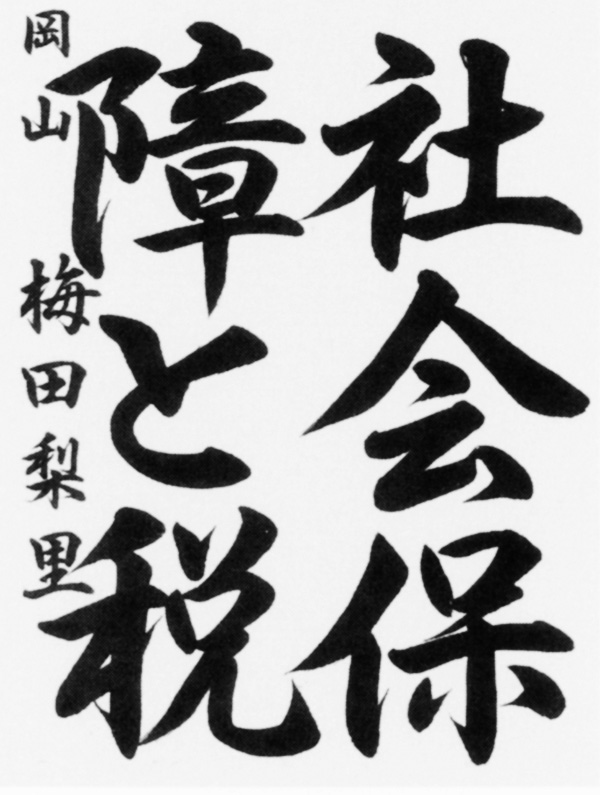 社会保
障と税
岡山 梅田梨里